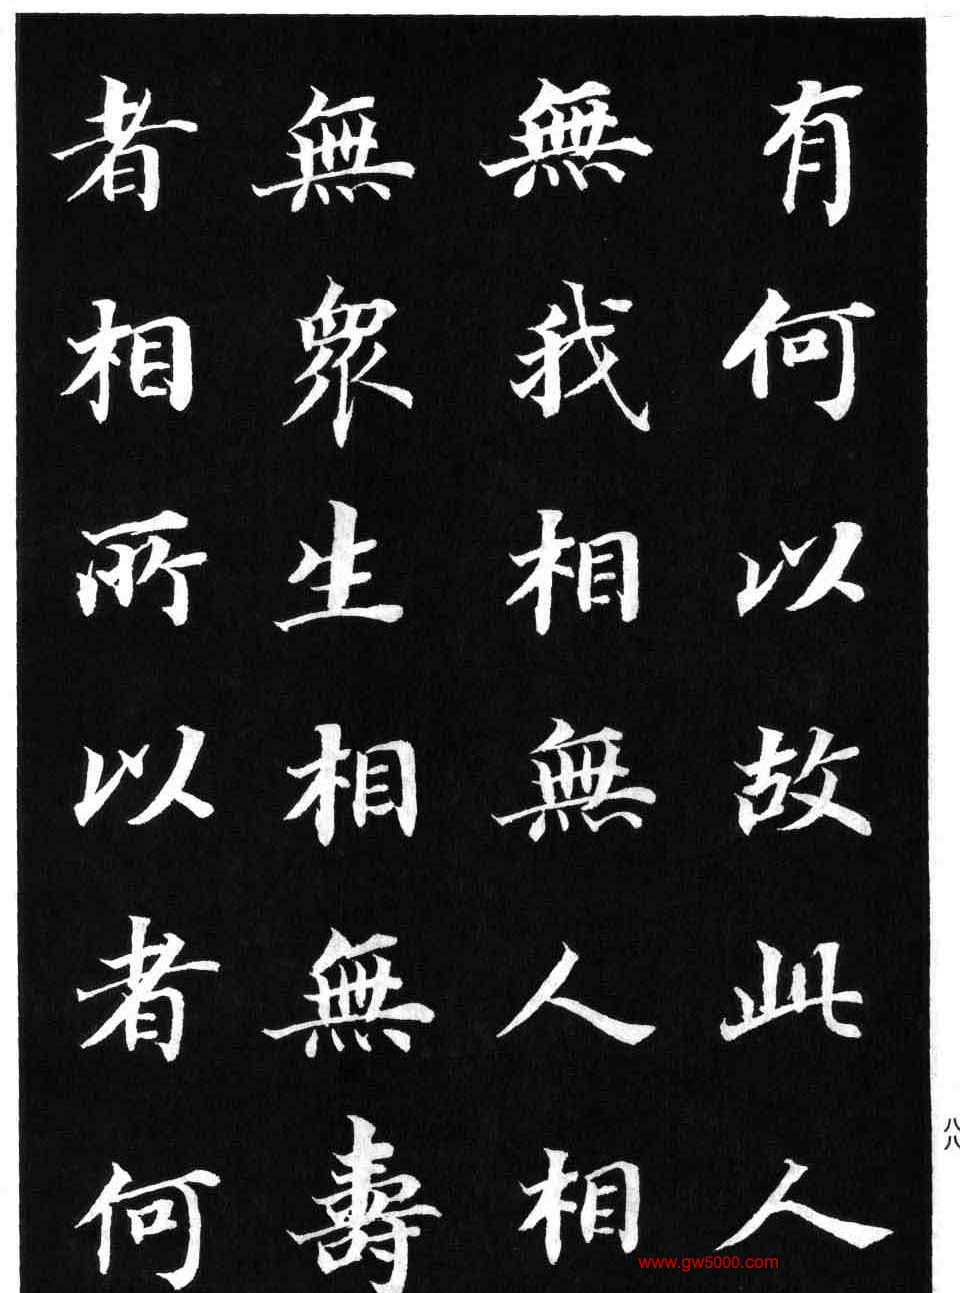 有何以故此人
無我相無人相
無眾生相無壽
者相所以者何
八八
www.gw5000.com